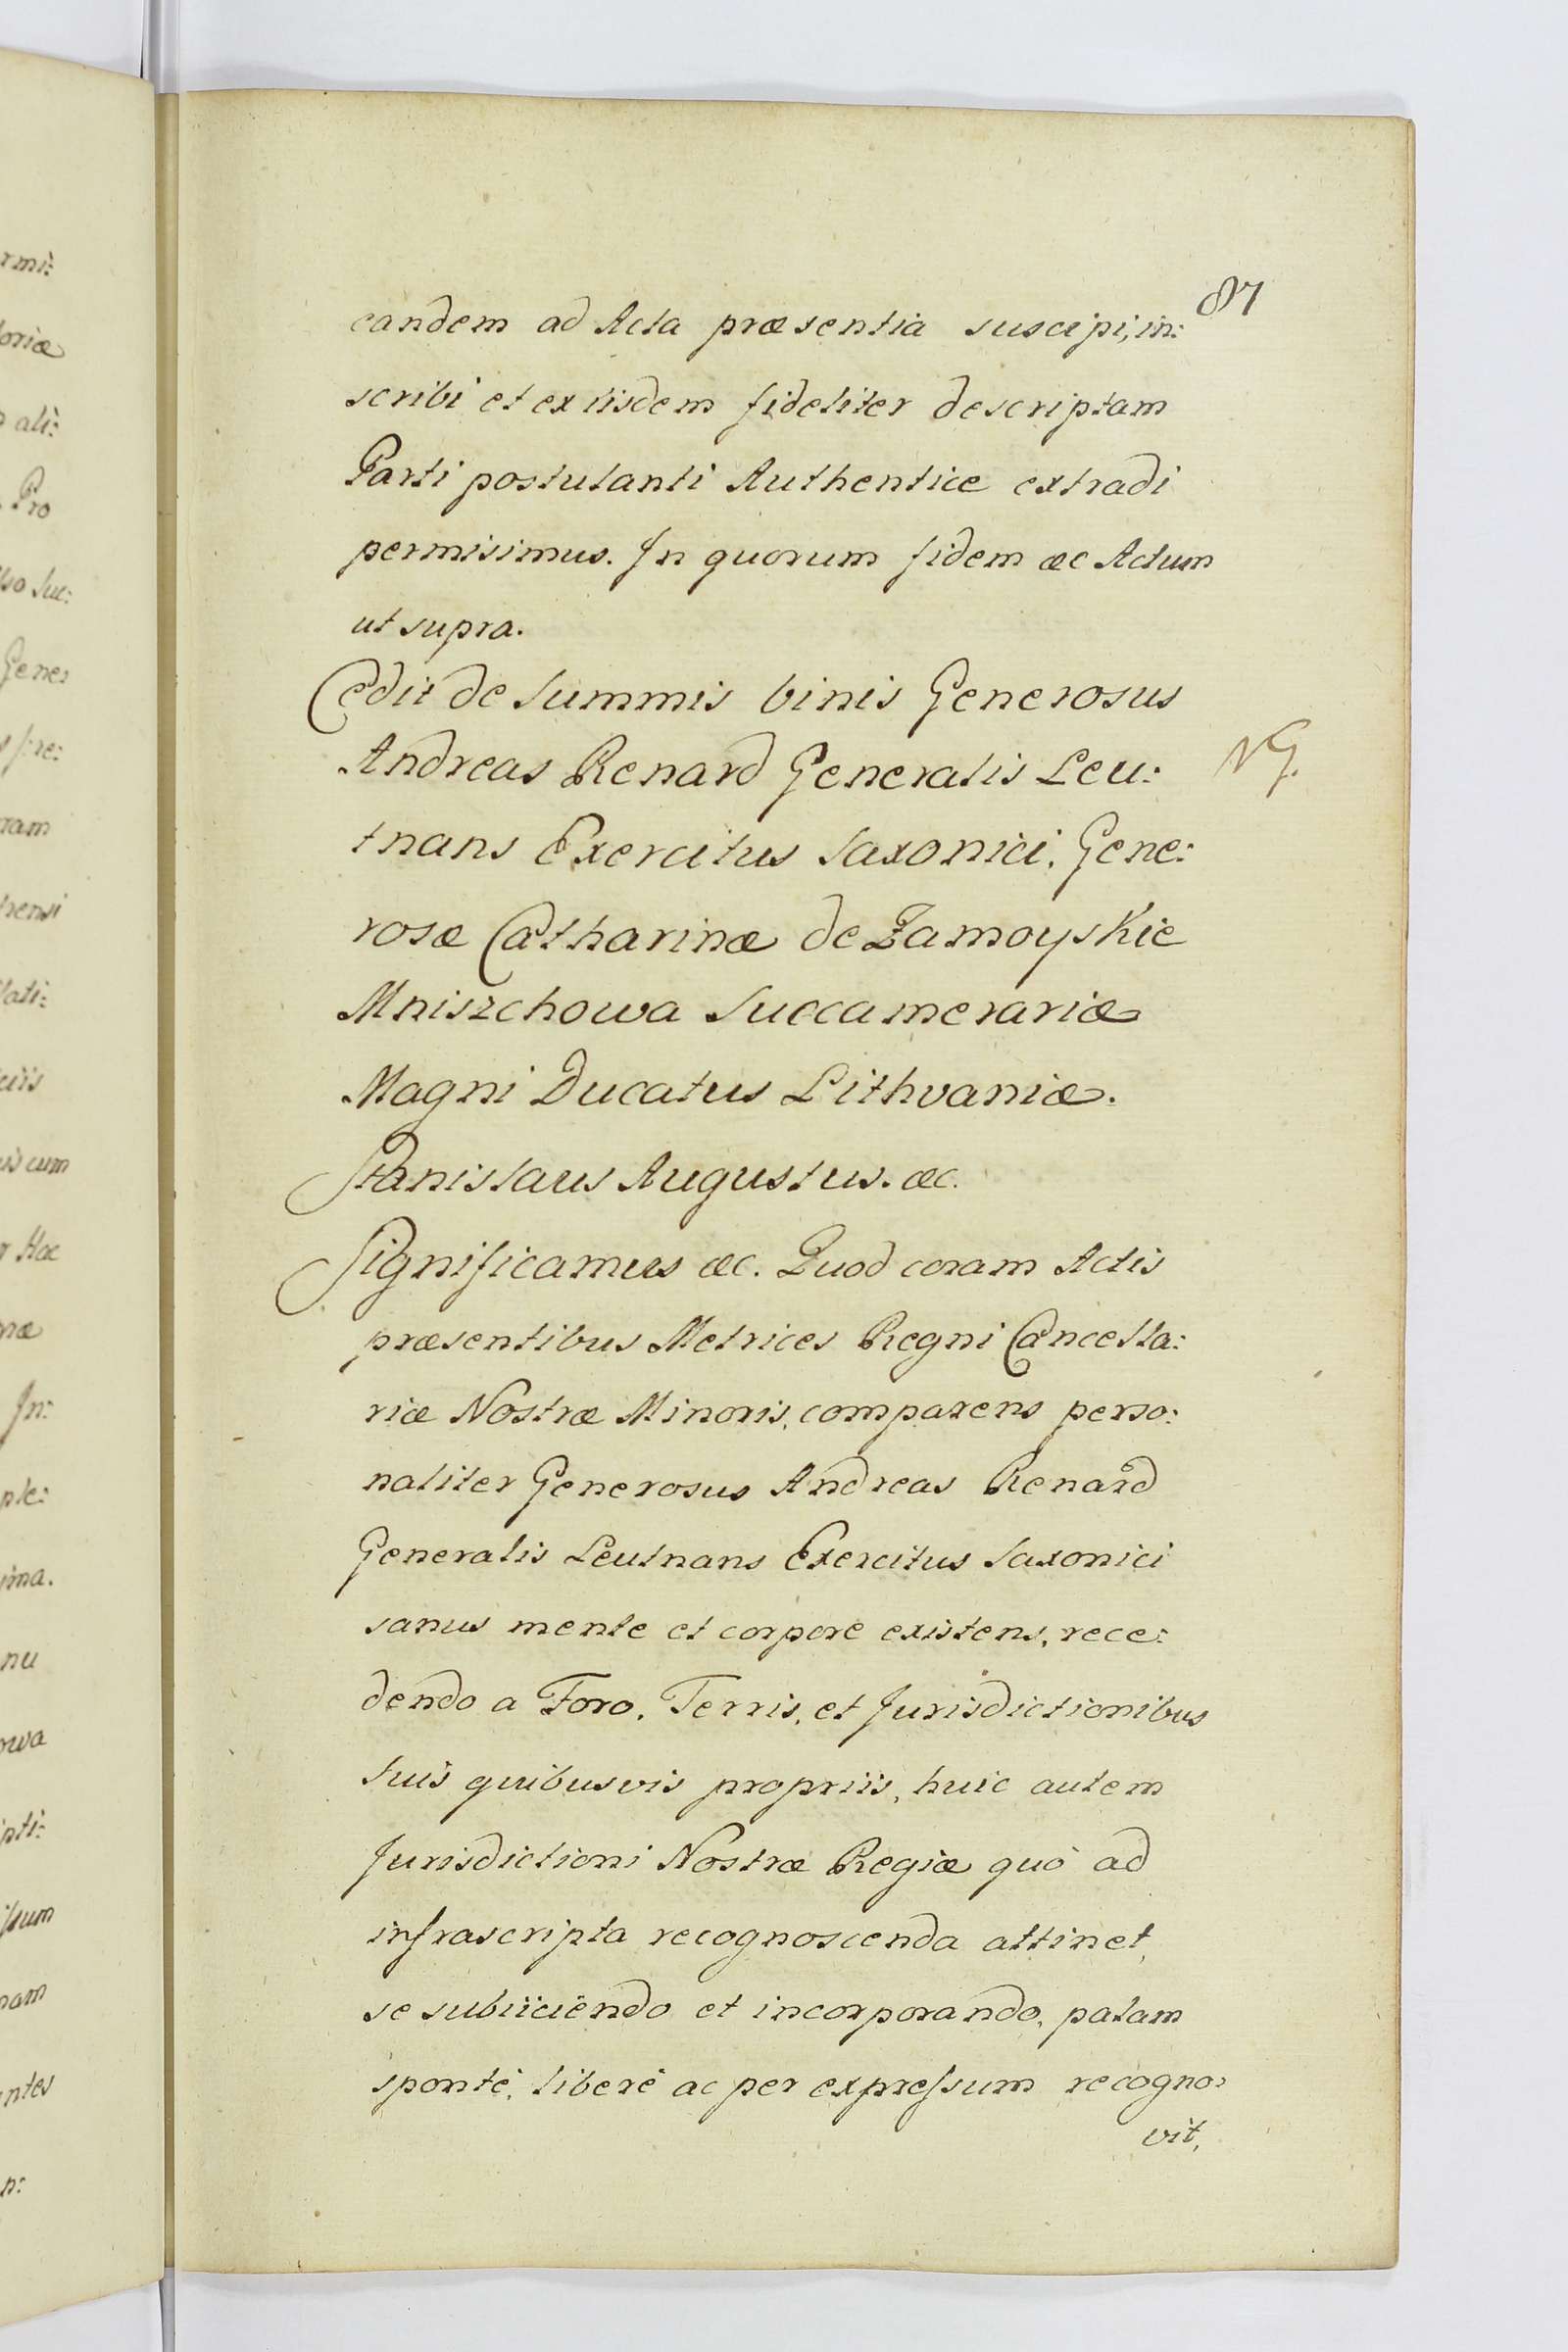 87
eandem ad Acta præsentia suscipi, in:
scribi et ex iisdem fideliter descriptam
Parti postulanti Authentice extradi
permisimus. In quorum fidem æc Actum
ut supra.
Cedit de Summis binis Generosus
Andreas Renard Generalis Leu:
tnans Exercitus Saxonici, Gene:
rosæ Catharinæ de Zamoyskie
Mniszchowa Succamerariæ
Magni Ducatus Lithvaniæ.
Stanislaus Augustus. æc.
Significamus æc. Quod coram Actis
præsentibus Metrices Regni Cancella:
riæ Nostræ Minoris, comparens perso:
naliter Generosus Andreas Renard
Generalis Leutnans Exercitus Saxonici
sanus mente et corpore existens, rece:
dendo a Foro, Terris, et Jurisdictionibus
suis quibusvis propriis, huic autem
Jurisdictioni Nostræ Regiæ quò ad
infrascripta recognoscenda attinet,
se subiiciendo et incorporando, palam
sponté, liberé ac per expressum recogno:
vit,
rmi:
oriæ
ali:
Pro
so Suc:
Gene:
ram
trensi
lati:
ciis
is cum
Hac
næ
In:
ple:
ima.
nu
owa
pti:
ssum
nam
ntes
p: